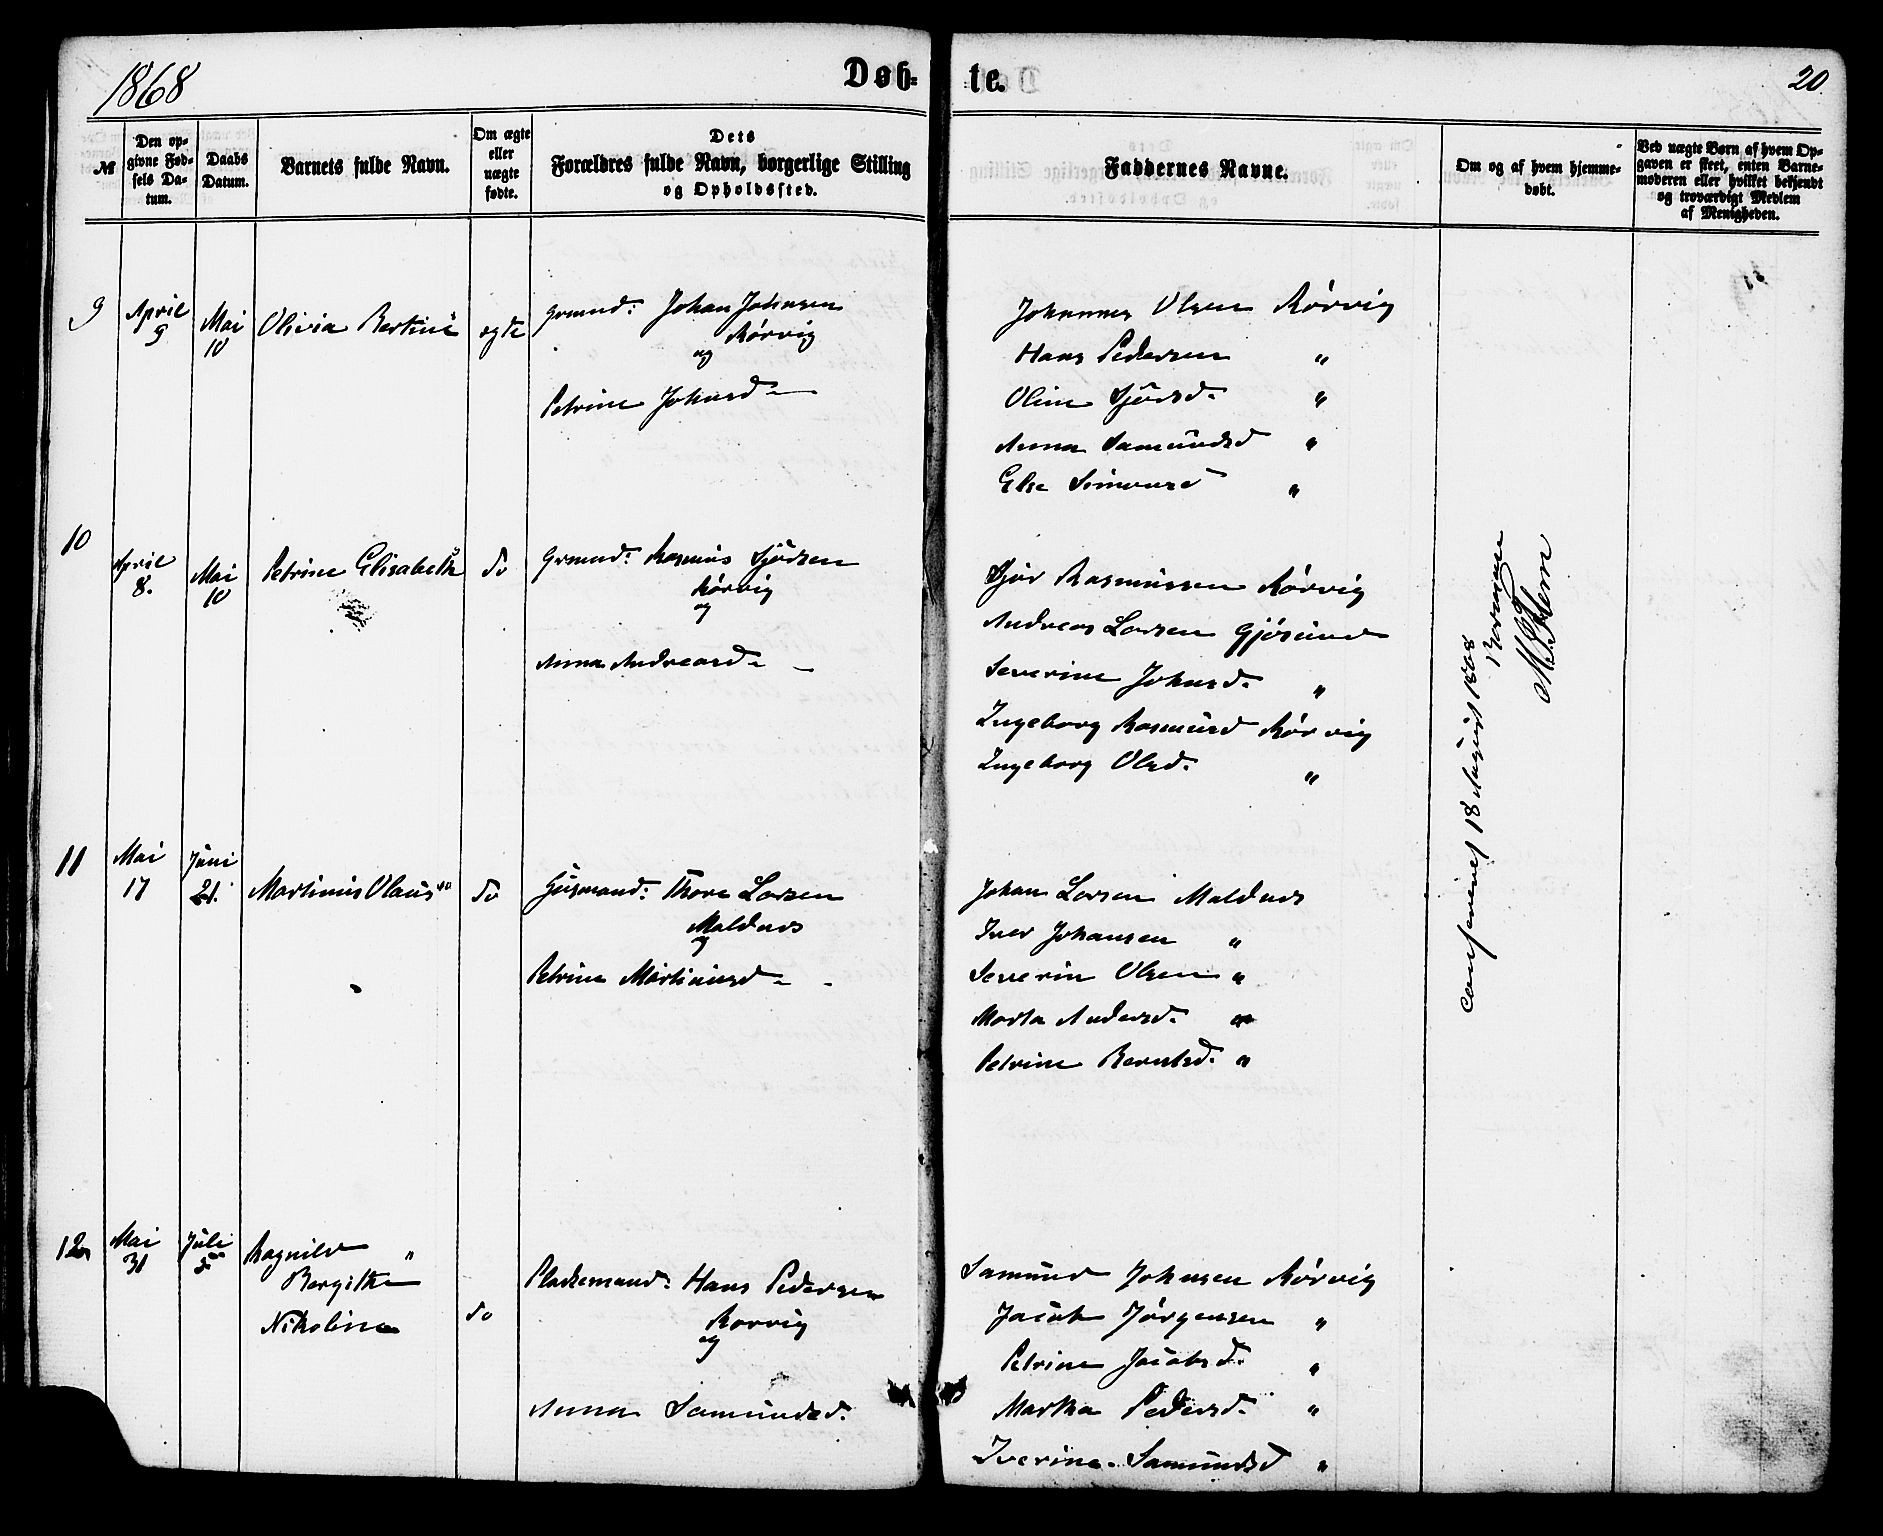 1868
Døb-
te.
20
№
Den op-
givne Fød-
sels Da-
tum.
Daabs
Datum.
Barnets fulde Navn.
Om ægte
eller
uægte
fødte.
Dets
Forældres fulde Navn, borgerlige Stilling
og Opholdssted.
Faddernes Navne.
Om og af hvem hjemme-
døbt.
Ved uægte Børn af hvem Op-
gaven er skeet, enten Barne-
moderen eller hvilket bekjendt
og troværdigt Medlem
af Menigheden.
9
April
9
Mai
10
Olivia Bertine
ægte
Grmnd: Johan Johnsen
Rørvig
og
Petrine Johnsd
Johannes Olsen Rørvig
Hans Pedersen "
Oline Sjursd. "
Anna Samundsd "
Else Simonsd "
10
April
8.
Mai
10
Petrine Elisabeth
do
Grmnd: Rasmus Sjursen
Rørvig
og
Anna Andreasd -
Sjur Rasmussen Rørvig
Andreas Larsen Gjøsund
Severine Johnsd. "
Ingeborg Rasmusd Rørvig
Ingeborg Olsd. "
11
Mai
17
Juni
21.
Martinus Olaus
do
Husmand: Thore Larsen
Moldnes
og
Petrine Martinusd - -
Johan Larsen Moldnes
Iver Johansen "
Severin Olsen "
Marta Andersd. "
Petrine Berntsd. "
12
Mai
31
Juli
5
Ragnild "
Bergithe
Nikoline
do
Pladsemand: Hans Pedersen
Rørvig
og
Anna Samundsd.
Samund Johnsen Rørvig
Jacob Jørgensen "
Petrine Jacobsd. "
Martha Pedersd. "
Iverine Samundsd "
Confereret 18 August 1868